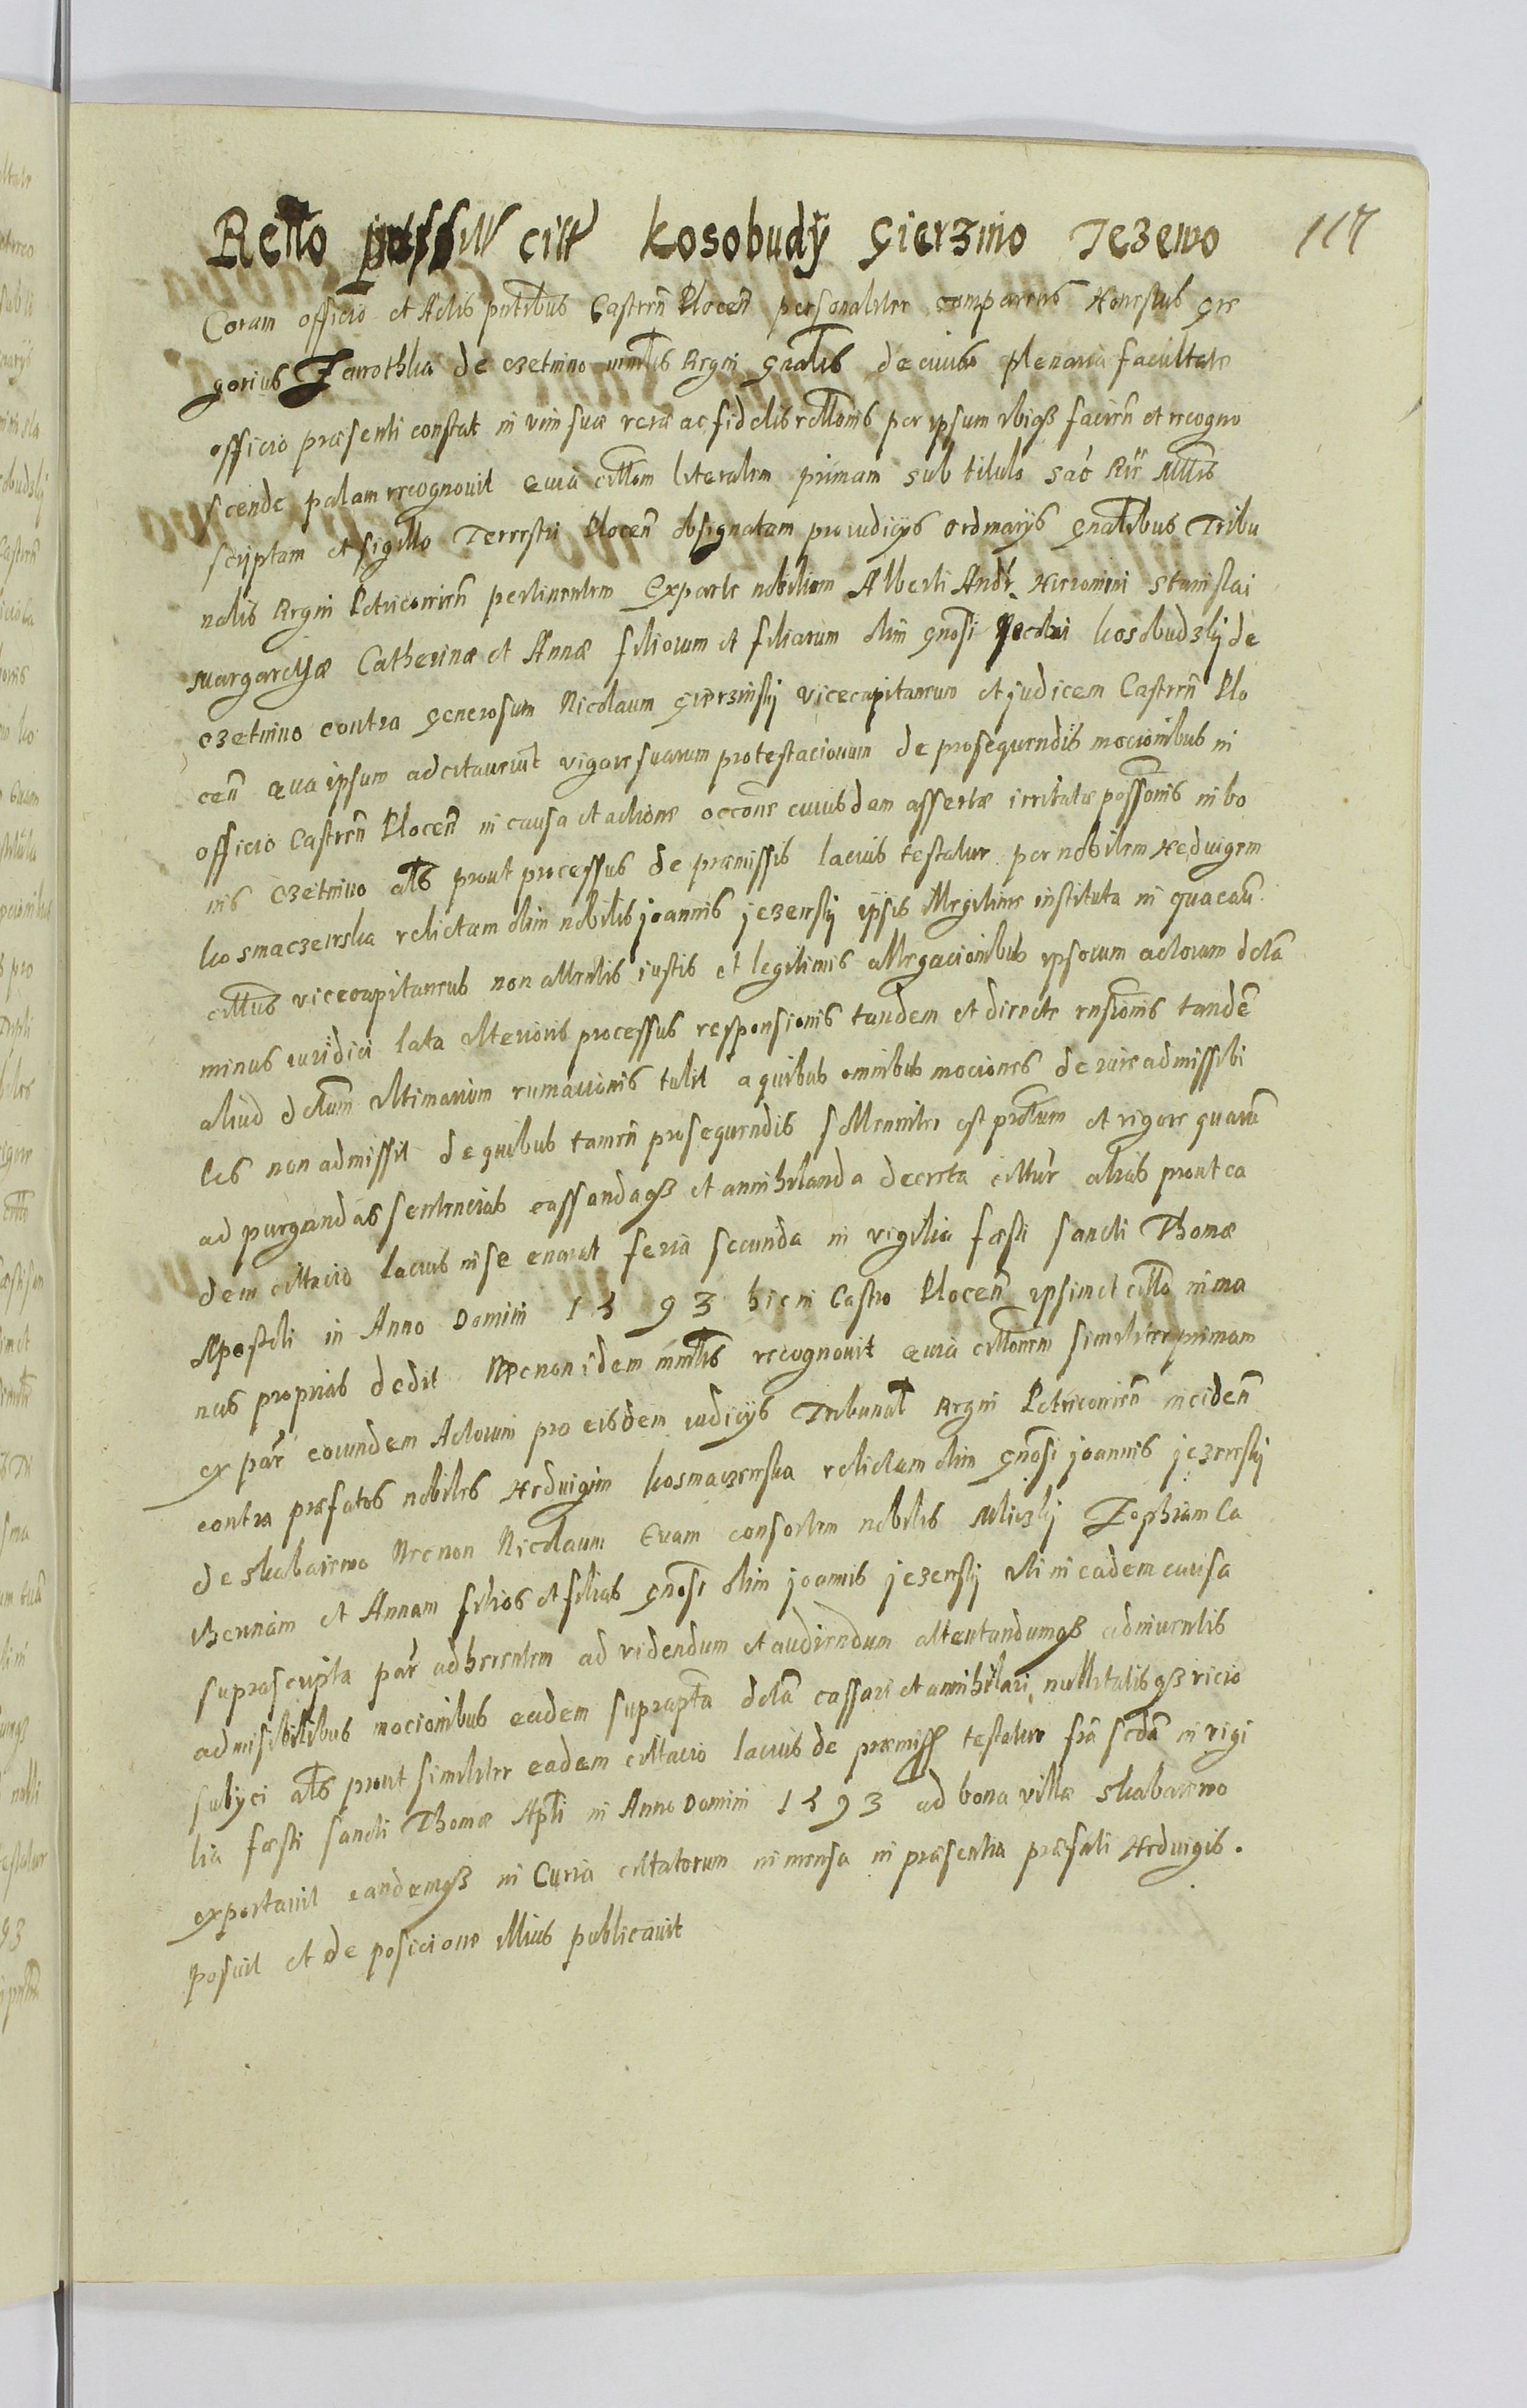 Rello citt Kosobudÿ Gierzino Jezewo 117
Coram officio et Actis pntibus Castren Plocen personaliter comparens Honestus Gre
gorius Zarothka de Czetnino mnlis Regni Gnalis de cuius plenaria facultate
officio præsenti constat in vim suæ veræ ac fidelis rellonis per ipsum ubiqz facien et recogno
scende palam recognovit quia cittem literalem primam sub titulo sac
scriptam et sigillo Terrestri Plocen obsignatam pro iudicijs ordinarijs Gnalibus Tribu
nalis Regni Petricovien pertinentem Ex parte nobilium Alberti Andr Hieronimi Stanislai
Margarethæ Catherinæ et Annæ filiorum et filiarum olim Gnosi Kosobudzkij de
Czetnino contra Generosum Nicolaum Gierzinskij vicecapitaneum et judicem Castren Plo
cen qua ipsum adcitaverint vigore suarum protestacionum de prosequendis mocionibus in
officio Castren Plocen in causa et actione occone cuiusdam assertæ irritatæ possonis in bo
nis Czetnino als prout processus de præmissis lacius testatur per nobilem Heduigem
Kosmaczewska relictam olim nobilis Joannis Jezewskij ipsis illegitime instituta in qua eam
cittus vicecapitaneus non attentis iustis et legitimis allegacionibus ipsorum actorum dcta
minus iuridici lata ulterioris processus responsionis tandem et directe tande
aliud dctum ultimarium tulit a quibus omnibus mociones de iure admissibi
les non admissit de quibus tamen prosequendis sollenniter est protum et vigore quarum
ad purgandas sentencias cassandaqz et annihilanda decreta cittur alias prout ea
dem cittacio lacius in se enarat feria secunda in vigilia fæsti sancti Thomæ
Apostoli in Anno Domini 1593 hic in Castro Plocen ipsimet citto in ma
nus proprias dedit Necnon idem mnlis recognouit quia cittonem similiter primam
ex par eorundem Actorum pro eisdem iudicijs Tribunal Regni Petricovien inciden
contra præfatos nobiles Heduigim Kosmaczewska relictam olim Gnosi Joannis Jezewskij
de Skabaiewo Necnon Nicolaum Evam consortem nobilis Zophiam Ca
therinam et Annam filios et filias Gnosi olim Joannis Jezewskij uti in eadem causa
suprascripta par adherentem ad videndum et audiendum attentandumqz adinuentis
admisibilibus mocionibus eadem suprapta dcta cassari et annihilari, nullitatisqz vicio
subijci als prout similiter eadem cittacio lacius de præmiss testatur fra scda in vigi
lia fæsti sancti Thomæ Apli in Anno Domini 1593 ad bona villæ Skabaiewo
exportavit eandemqz in Curia cittatorum in mensa in præsentia præfati Heduigis.
Posuit et de posicione illius publicauit